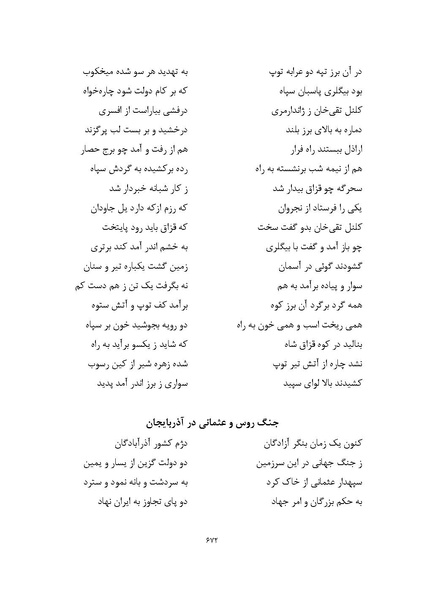 در آن برز تپه دو عرابه توپ به تهدید هر سو شده میخکوب
بود بیگلری پاسبان سپاه که بر کام دولت شود چاره‌خواه
کلنل تقی‌خان ز ژاندارمری درفشی بیاراست از افسری
دماره به بالای برز بلند درخشید و بر بست لب پرگزند
اراذل ببستند راه فرار هم از رفت و آمد چو برج حصار
هم از نیمه شب برنشسته به راه رده برکشیده به گردش سپاه
سحرگه چو قزاق بیدار شد ز کار شبانه خبردار شد
یکی را فرستاد از نجروان که رزم ازکه دارد یل جاودان
کلنل تقی‌خان بدو گفت سخت که قزاق باید رود پایتخت
چو باز آمد و گفت با بیگلری به خشم اندر آمد کند برتری
گشودند گوئی در آسمان زمین گشت یکباره تیر و سنان
سوار و پیاده برآمد به هم نه بگرفت یک تن ز هم دست کم
همه گرد برگرد آن برز کوه برآمد کف توپ و آتش ستوه
همی ریخت اسب و همی خون به راه دو رویه بجوشید خون بر سپاه
بنالید در کوه قزاق شاه که شاید ز یکسو برآید به راه
نشد چاره از آتش تیر توپ شده زهره شیر از کین رسوب
کشیدند بالا لوای سپید سواری ز برز اندر آمد پدید
جنگ روس و عثمانی در آذربایجان
کنون یک زمان بنگر آزادگان دژم کشور آذرآبادگان
ز جنگ جهانی در این سرزمین دو دولت گزین از یسار و یمین
سپهدار عثمانی از خاک کرد به سردشت و بانه نمود و سترد
به حکم بزرگان و امر جهاد دو پای تجاوز به ایران نهاد
۶۷۲